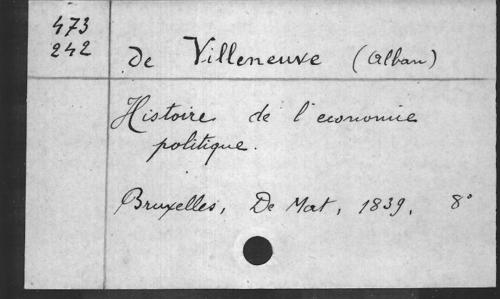 473
242
de Villeneuve (Alban)
Histoire de l'economie
politique.
Bruxelles, De Mat, 1839. 8°